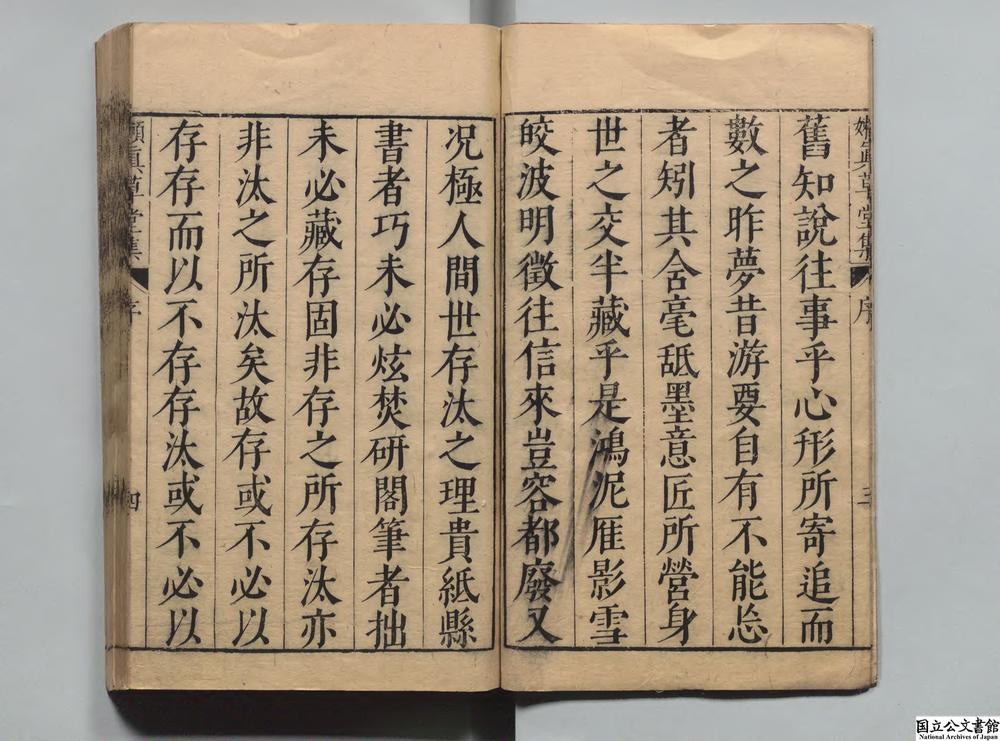 嬾真草堂集
序
三
舊知說往事乎心形所寄追而
數之昨夢昔游要自有不能忘
者矧其含毫舐墨意匠所營身
世之交半藏乎是鴻泥雁影雪
皎波明徵往信來豈容都廢又
况極人間世存汰之理貴紙縣
書者巧未必炫焚研閣筆者拙
未必藏存固非存之所存汰亦
非汰之所汰矣故存或不必以
存存而以不存存汰或不必以
嬾真草堂集
序
四
国立公文書館
National Archives of Japan